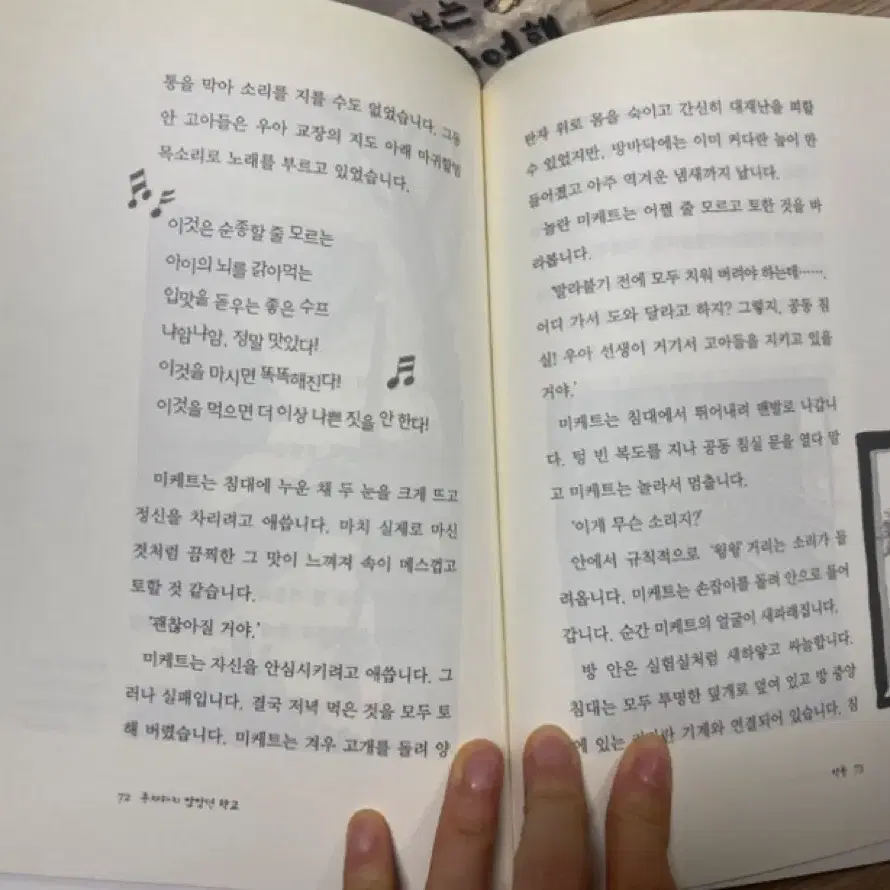 통을 막아 소리를 지를 수도 없었습니다. 그동
안 고아들은 우아 교장의 지도 아래 마귀할멈
목소리로 노래를 부르고 있었습니다.
이것은 순종할 줄 모르는
아이의 뇌를 갉아먹는
입맛을 돋우는 좋은 수프
냐암냐암, 정말 맛있다!
이것을 마시면 똑똑해진다!
이것을 먹으면 더 이상 나쁜 짓을 안 한다!
미케트는 침대에 누운 채 두 눈을 크게 뜨고
정신을 차리려고 애씁니다. 마치 실제로 마신
것처럼 끔찍한 그 맛이 느껴져 속이 메스껍고
토할 것 같습니다.
'괜찮아질 거야.'
미케트는 자신을 안심시키려고 애씁니다. 그
러나 실패입니다. 결국 저녁 먹은 것을 모두 토
해 버렸습니다. 미케트는 겨우 고개를 돌려 양
72
학교
탄자 위로 몸을 숙이고 간신히 대재난을 피할
수 있었지만, 방바닥에는 이미 커다란 늪이 만
들어졌고 아주 역겨운 냄새까지 납니다.
놀란 미케트는 어쩔 줄 모르고 토한 것을 바
라봅니다.
'말라붙기 전에 모두 치워 버려야 하는데…….
어디 가서 도와 달라고 하지? 그렇지, 공동 침
실! 우아 선생이 거기서 고아들을 지키고 있을
거야.'
미케트는 침대에서 뛰어내려 맨발로 나갑니
다. 텅 빈 복도를 지나 공동 침실 문을 열다 말
고 미케트는 놀라서 멈춥니다.
'이게 무슨 소리지?'
안에서 규칙적으로 '윙윙' 거리는 소리가 들
려옵니다. 미케트는 손잡이를 돌려 안으로 들어
갑니다. 순간 미케트의 얼굴이 새파래집니다.
방 안은 실험실처럼 새하얗고 싸늘합니다.
침대는 모두 투명한 덮개로 덮여 있고 방 중앙
에 있는 기계와 연결되어 있습니다. 침
악몽 73